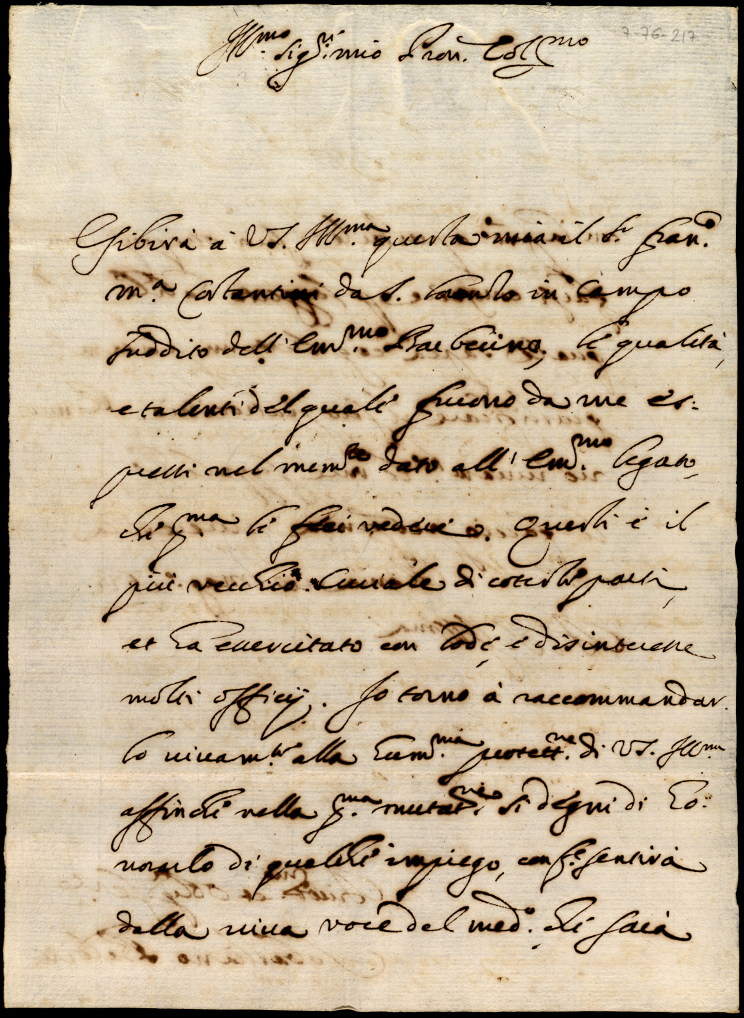 7-76-217
Ill.mo Sig.r mio Pron. Col.mo
Esibirà à VS. Ill.ma questa mia il S.r Fran.o
M.a Costantini da S. Lorenzo in Campo
suddito dell' Em.mo Barberino, le qualità,
e talenti del quale furono da me es-
pressi nel mem.le dato all' Em.mo Legato,
che p.ma le feci vedere. Questi è il
più vecchio Curiale di coteste parti,
et ha esercitato con lode, e disinteresse
molti officij. Io torno à raccommandar-
lo vivam.te alla hum.ma protett.ne di VS. Ill.ma
affinche nella p.ma mutat.ne si degni di ho-
norarlo di qualche impiego, conf.e sentirà
dalla viva voce del med.o che sarà